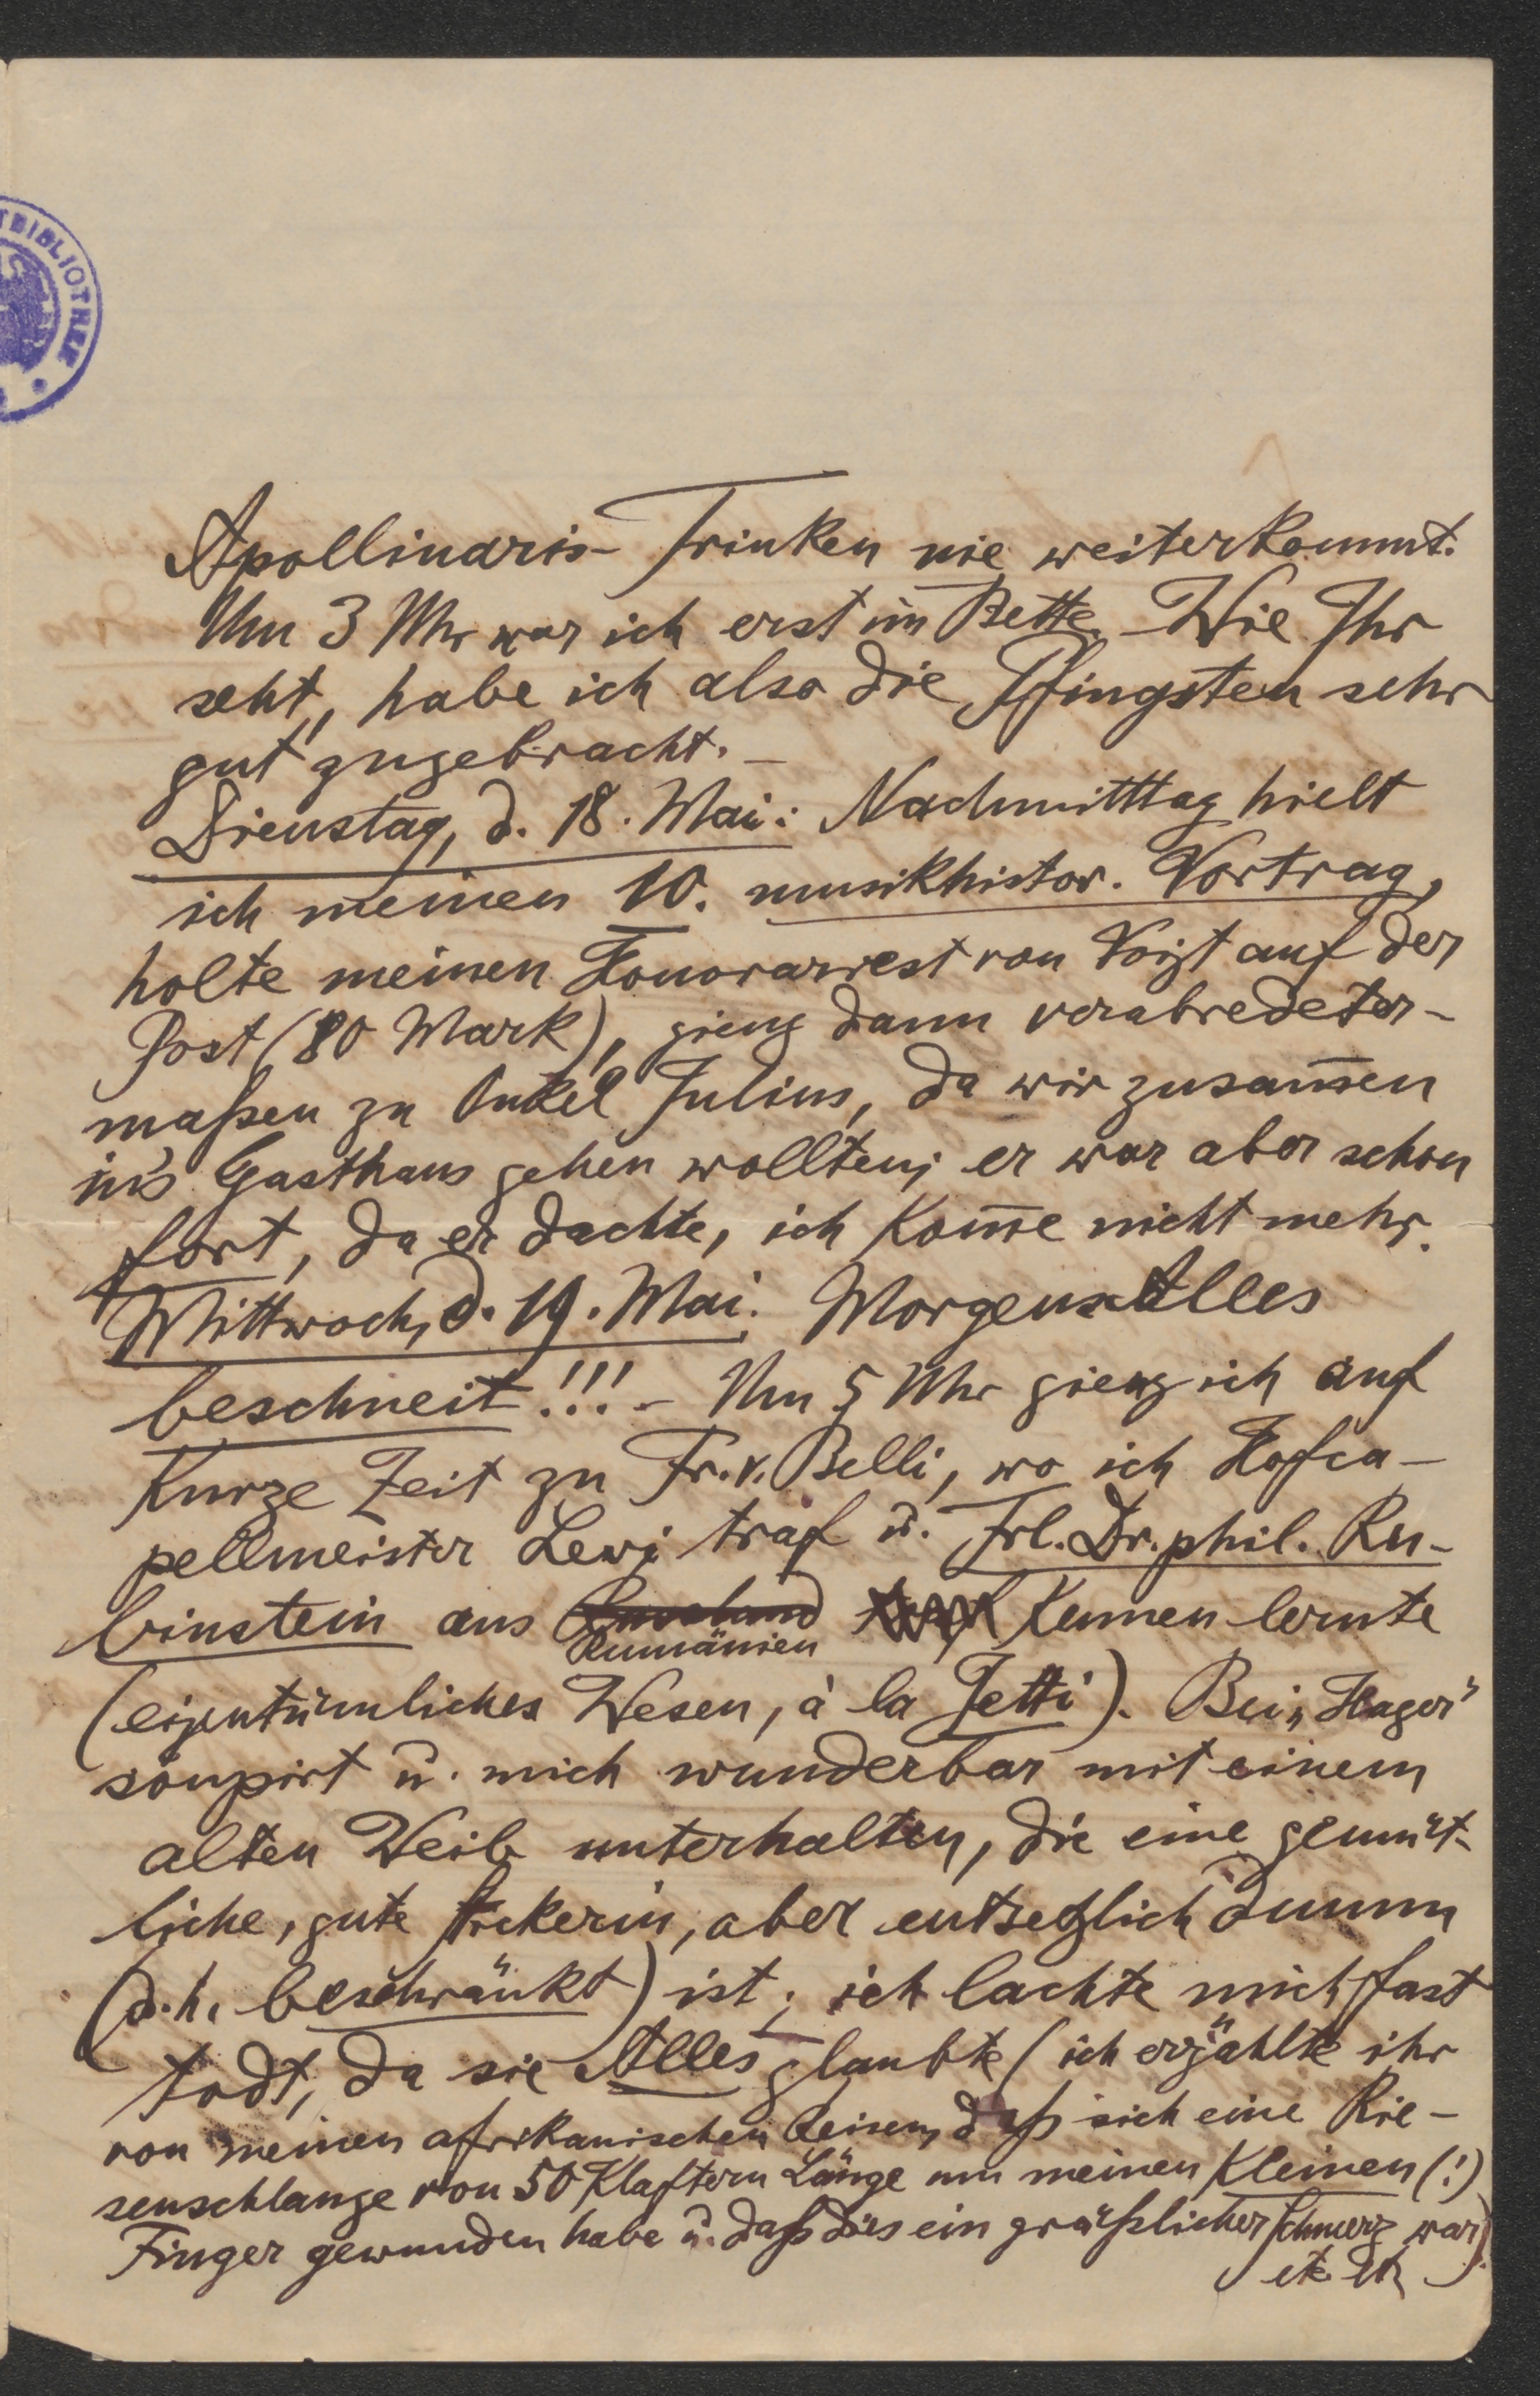 TBIBLIOTHEK
Apollinaris-Trinken nie weiterkommt.
Um 3 Uhr war ich erst im Bette. – Wie Ihr
seht, habe ich also die Pfingsten sehr
gut zugebracht. –
Dienstag, d. 18. Mai: Nachmitttag hielt
ich meinen 10. musikhistor. Vortrag,
holte meinen Honorarrest von Voigt auf der
Post (80 Mark), gieng dann verabredeter-
maßen zu Onkel Julius, da wir zusam̅en
in's Gasthaus gehen wollten; er war aber schon
fort, da er dachte, ich kom̅e nicht mehr.
Mittwoch, d. 19. Mai: Morgens Alles
beschneit!!! – Um 5 Uhr gieng ich auf
kurze Zeit zu Fr. v. Belli, wo ich Hofca-
pellmeister Levi traf u. Frl. Dr. phil. Ru-
binstein aus Russland kennen lernte
Rumänien
(eigentümliches Wesen, à la Jetti). Bei „Hager"
soupirt u. mich wunderbar mit einem
alten Weib unterhalten, die eine gemüt-
liche, gute Stickerin, aber entsetzlich dumm
(d. h. beschränkt) ist; ich lachte mich fast
todt, da sie Alles glaubte (ich erzählte ihr
von meinen afrikanischen Reisen, daß sich eine Rie-
senschlange von 50 Klaftern Länge um meinen kleinen (!)
Finger gewunden habe u. daß dies ein gräßlicher Schmerz war)
etc etc